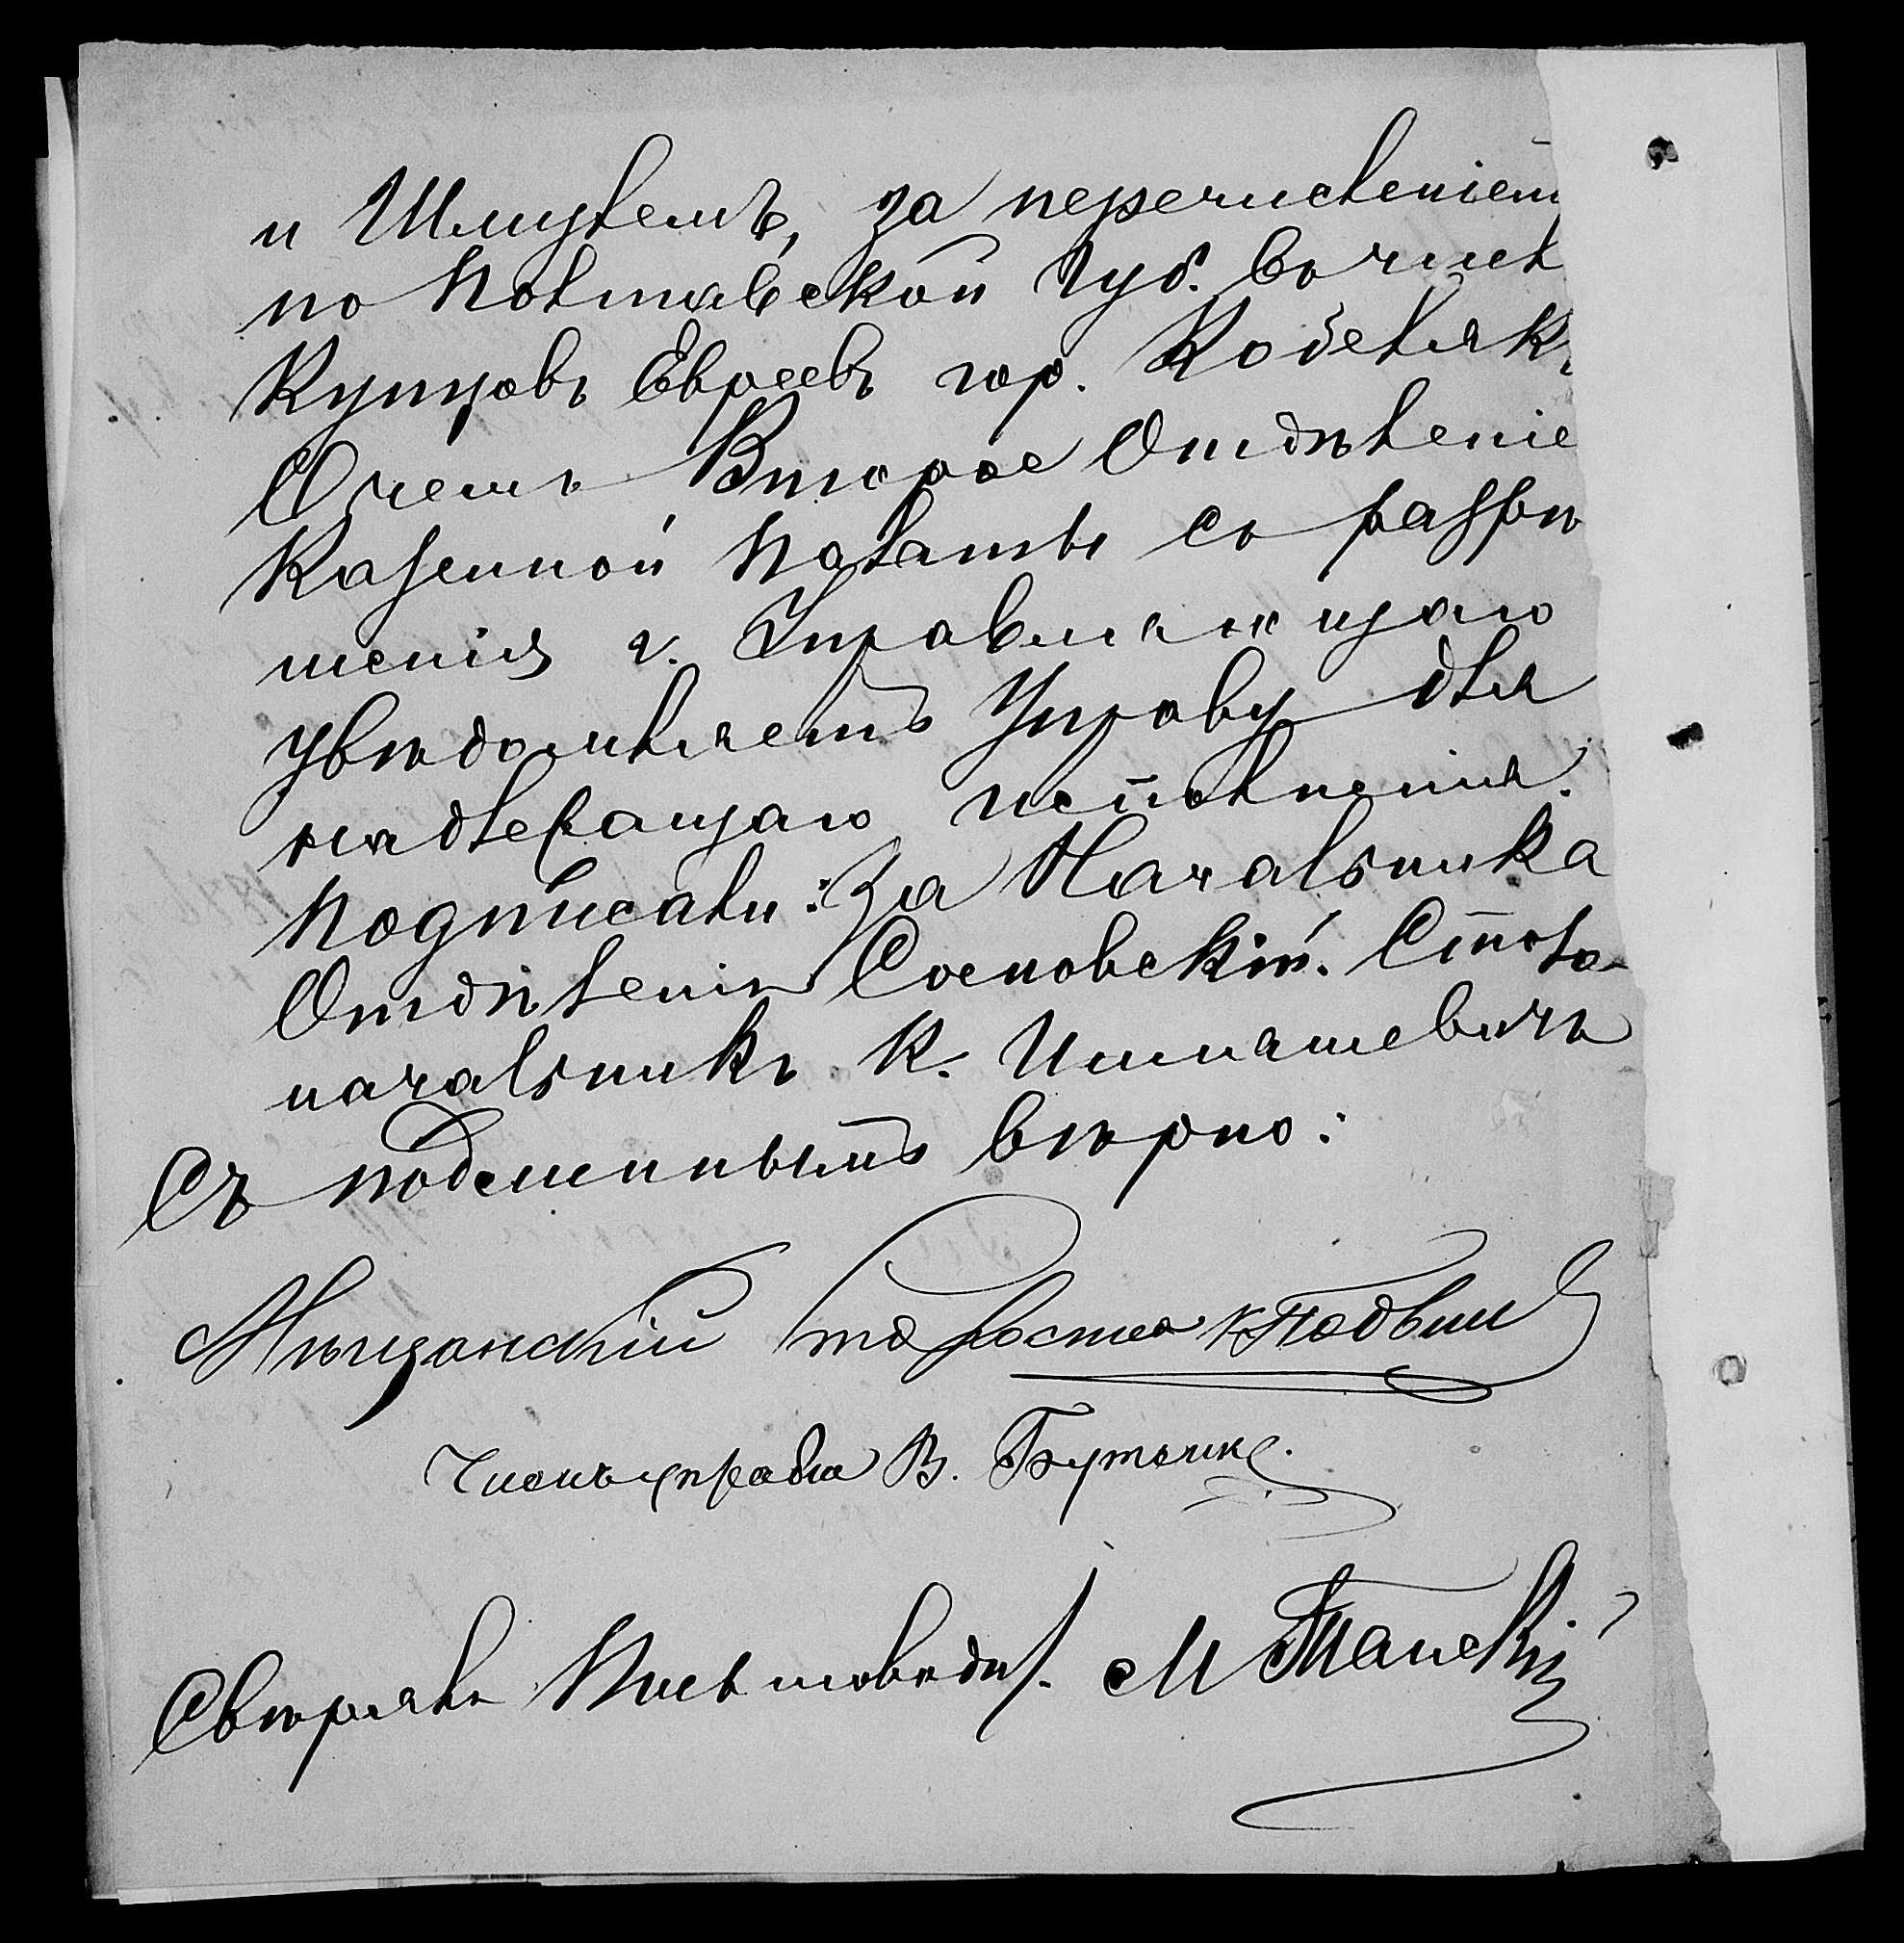 и Шмуелемъ, за перечисленiем
по Полтавской Губ. въ числ
Купцовъ Евреевъ гор. Кобелякъ
О чемъ Второе Отдѣленiе
Казенной Палаты съ разрѣ
шенiя г. Управляющаго
увѣдомляетъ Управу для
надлежащаго исполненiя.
Подписали: За Начальника
Отдѣленiя Сосновскiй. Столо-
начальникъ К. Иляшевичъ
Съ подлиннымъ вѣрно:
Мѣщанскiй староста К Подвин
Членъ управы В. Бутенко.
Свѣрялъ Письмоводит. М Танскiй